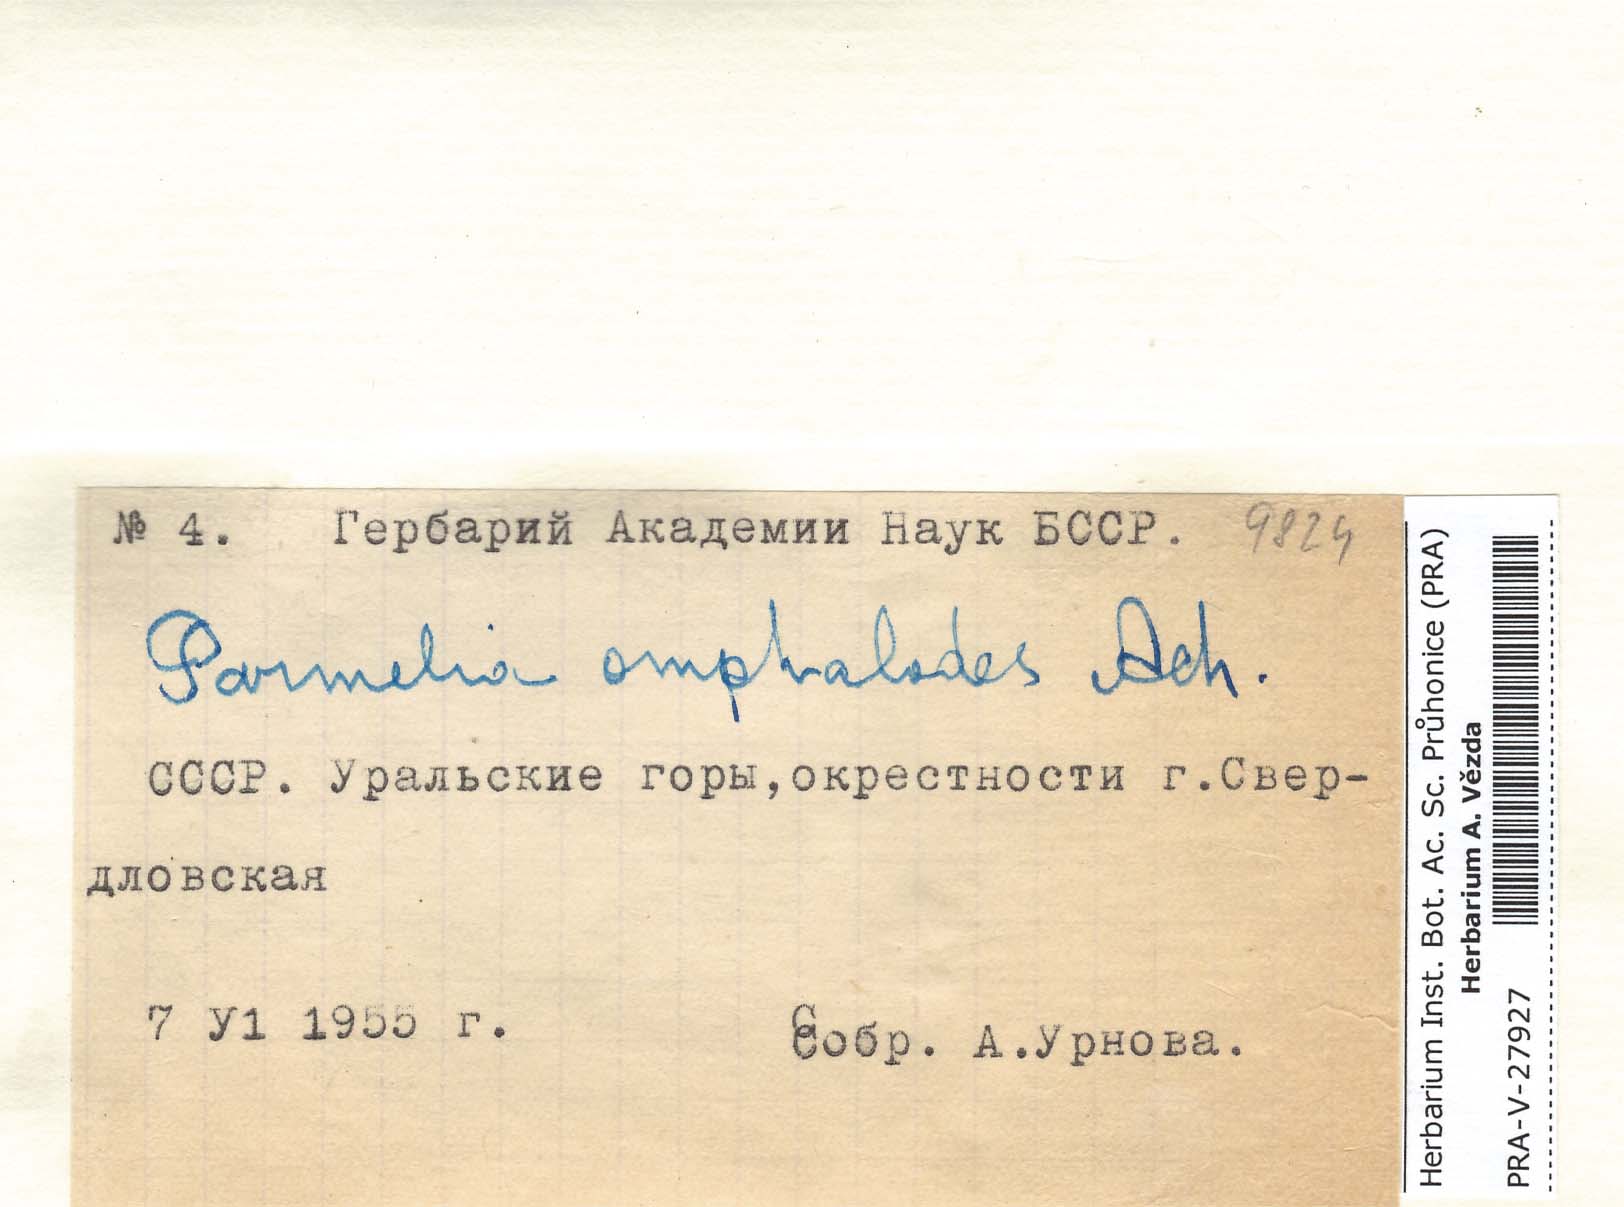 № 4. Гербарий Академии Наук БССР. 9824
Parmelia omphalodes Ach.
СССР. Уральские горы,окрестности г.Свер-
дловская
7 У1 1955 г. Собр. А.Урнова.
Herbarium Inst. Bot. Ac. Sc. Průhonice (PRA)
Herbarium A. Vězda
PRA-V-27927